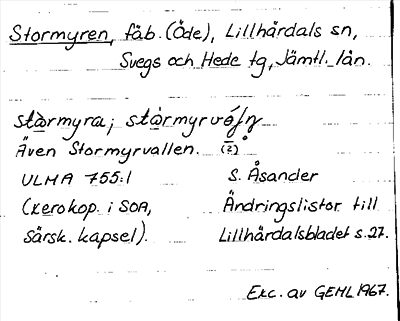 Stormyren, fäb. (Öde), Lillhärdals sn,
Svegs och Hede tg, Jämtl. län.
stòrmyra; stòrmyrvǿłņ
Även Stormyrvallen. (2)
ULMA 755:1 S. Åsander
(xerokop. i SOA, Ändringslistor till
särsk. kapsel). Lillhärdalsbladet s. 27.
Exc. av GEHL 1967.